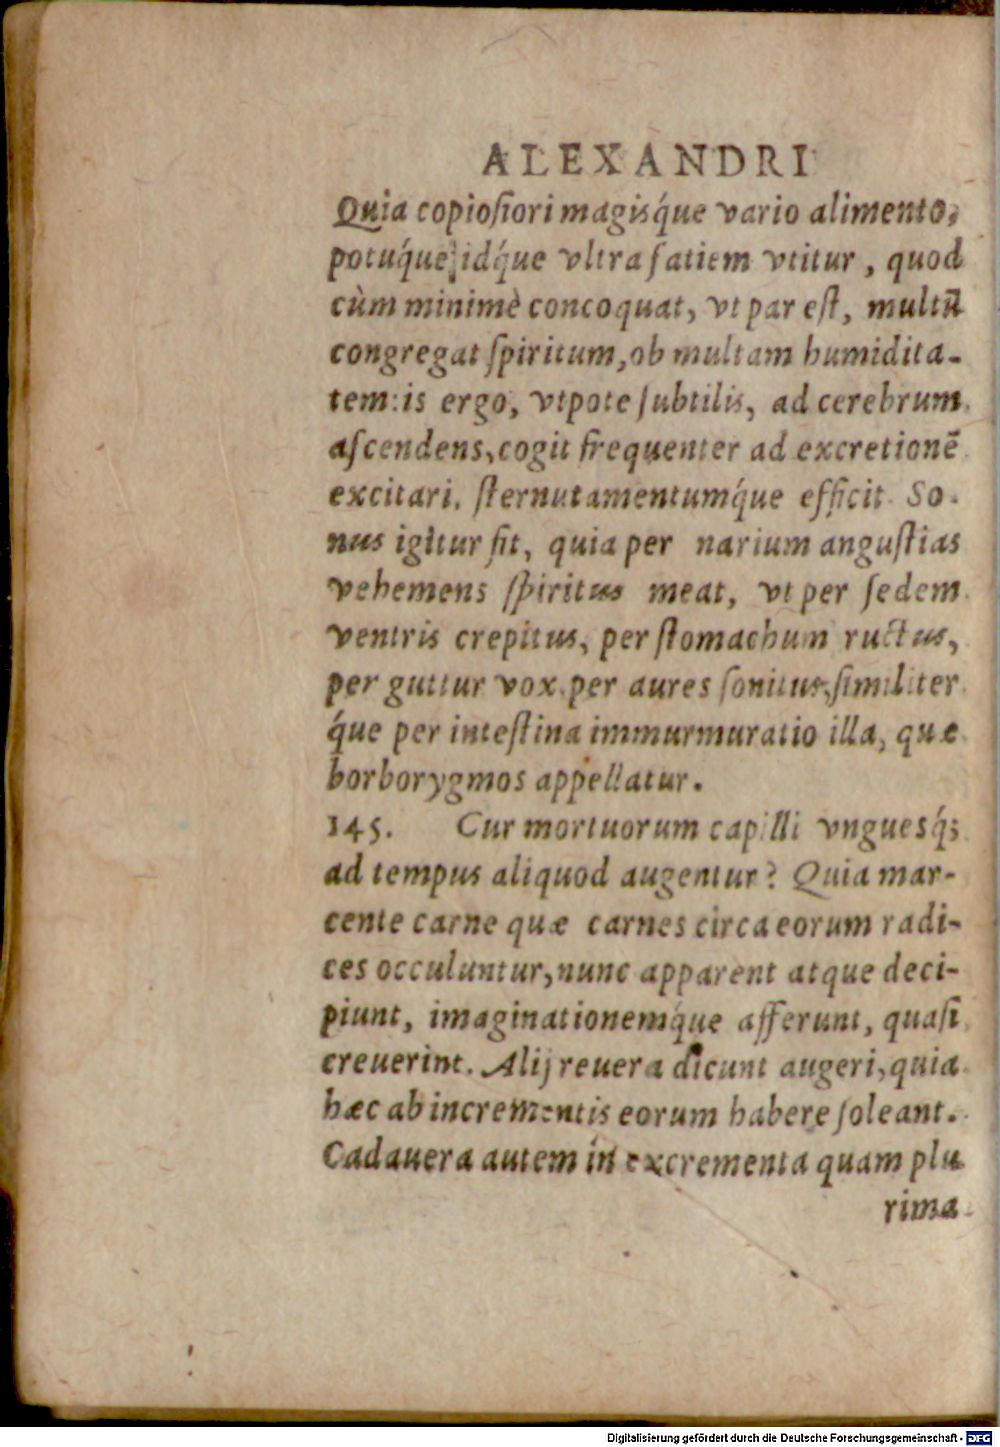 ALEXANDRI
Quia copiosiori magisq́ue vario alimento,
potuq́ue, idq́ue vltra satiem vtitur, quod
cùm minimè concoquat, vt par est, multū
congregat spiritum, ob multam humidita-
tem: is ergo, vtpote subtilis, ad cerebrum
ascendens, cogit frequenter ad excretionē
excitari, sternutamentumq́ue efficit. So-
nus igitur fit, quia per narium angustias
vehemens spiritus meat, vt per sedem
ventris crepitus, per stomachum ructus,
per guttur vox, per aures sonitus, similiter
q́ue per intestina immurmuratio illa, quæ
borborygmos appellatur.
145. Cur mortuorum capilli vnguesq́;
ad tempus aliquod augentur? Quia mar-
cente carne quæ carnes circa eorum radi-
ces occuluntur, nunc apparent atque deci-
piunt, imaginationemq́ue afferunt, quasi
creuerint. Alij reuera dicunt augeri, quia
hæc ab incrementis eorum habere soleant.
Cadauera autem in excrementa quam plu
rima
Digitalisierung gefördert durch die Deutsche Forschungsgemeinschaft - DFG